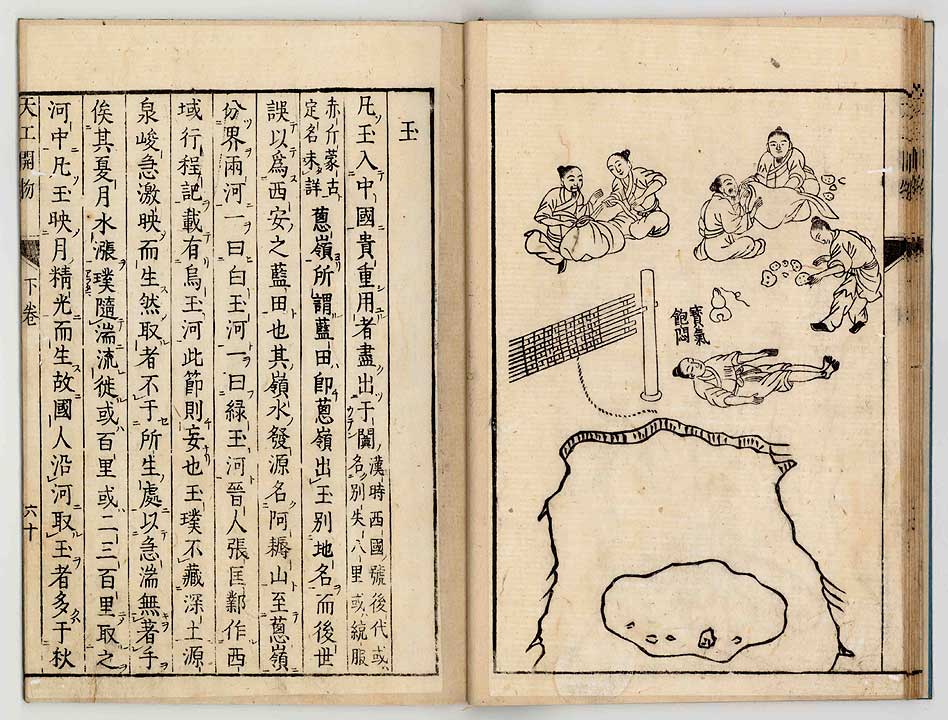 寶氣
飽悶
玉
凡玉入中國貴重用者盡出于闐漢時西國號後代或名別失八里或統服
赤斤蒙古定名未詳蔥嶺所謂藍田即蔥嶺出玉別地名而後世
誤以爲西安之藍田也其嶺水發源名阿耨山至蔥嶺
分界兩河一曰白玉河一曰綠玉河晉人張匡鄴作西
域行程記載有烏玉河此節則妄也玉璞不藏深土源
泉峻急激映而生然取者不于所生處以急湍無著手
俟其夏月水漲璞隨湍流徙或百里或二三百里取之
河中凡玉映月精光而生故國人沿河取玉者多于秋
天工開物 下卷 六十